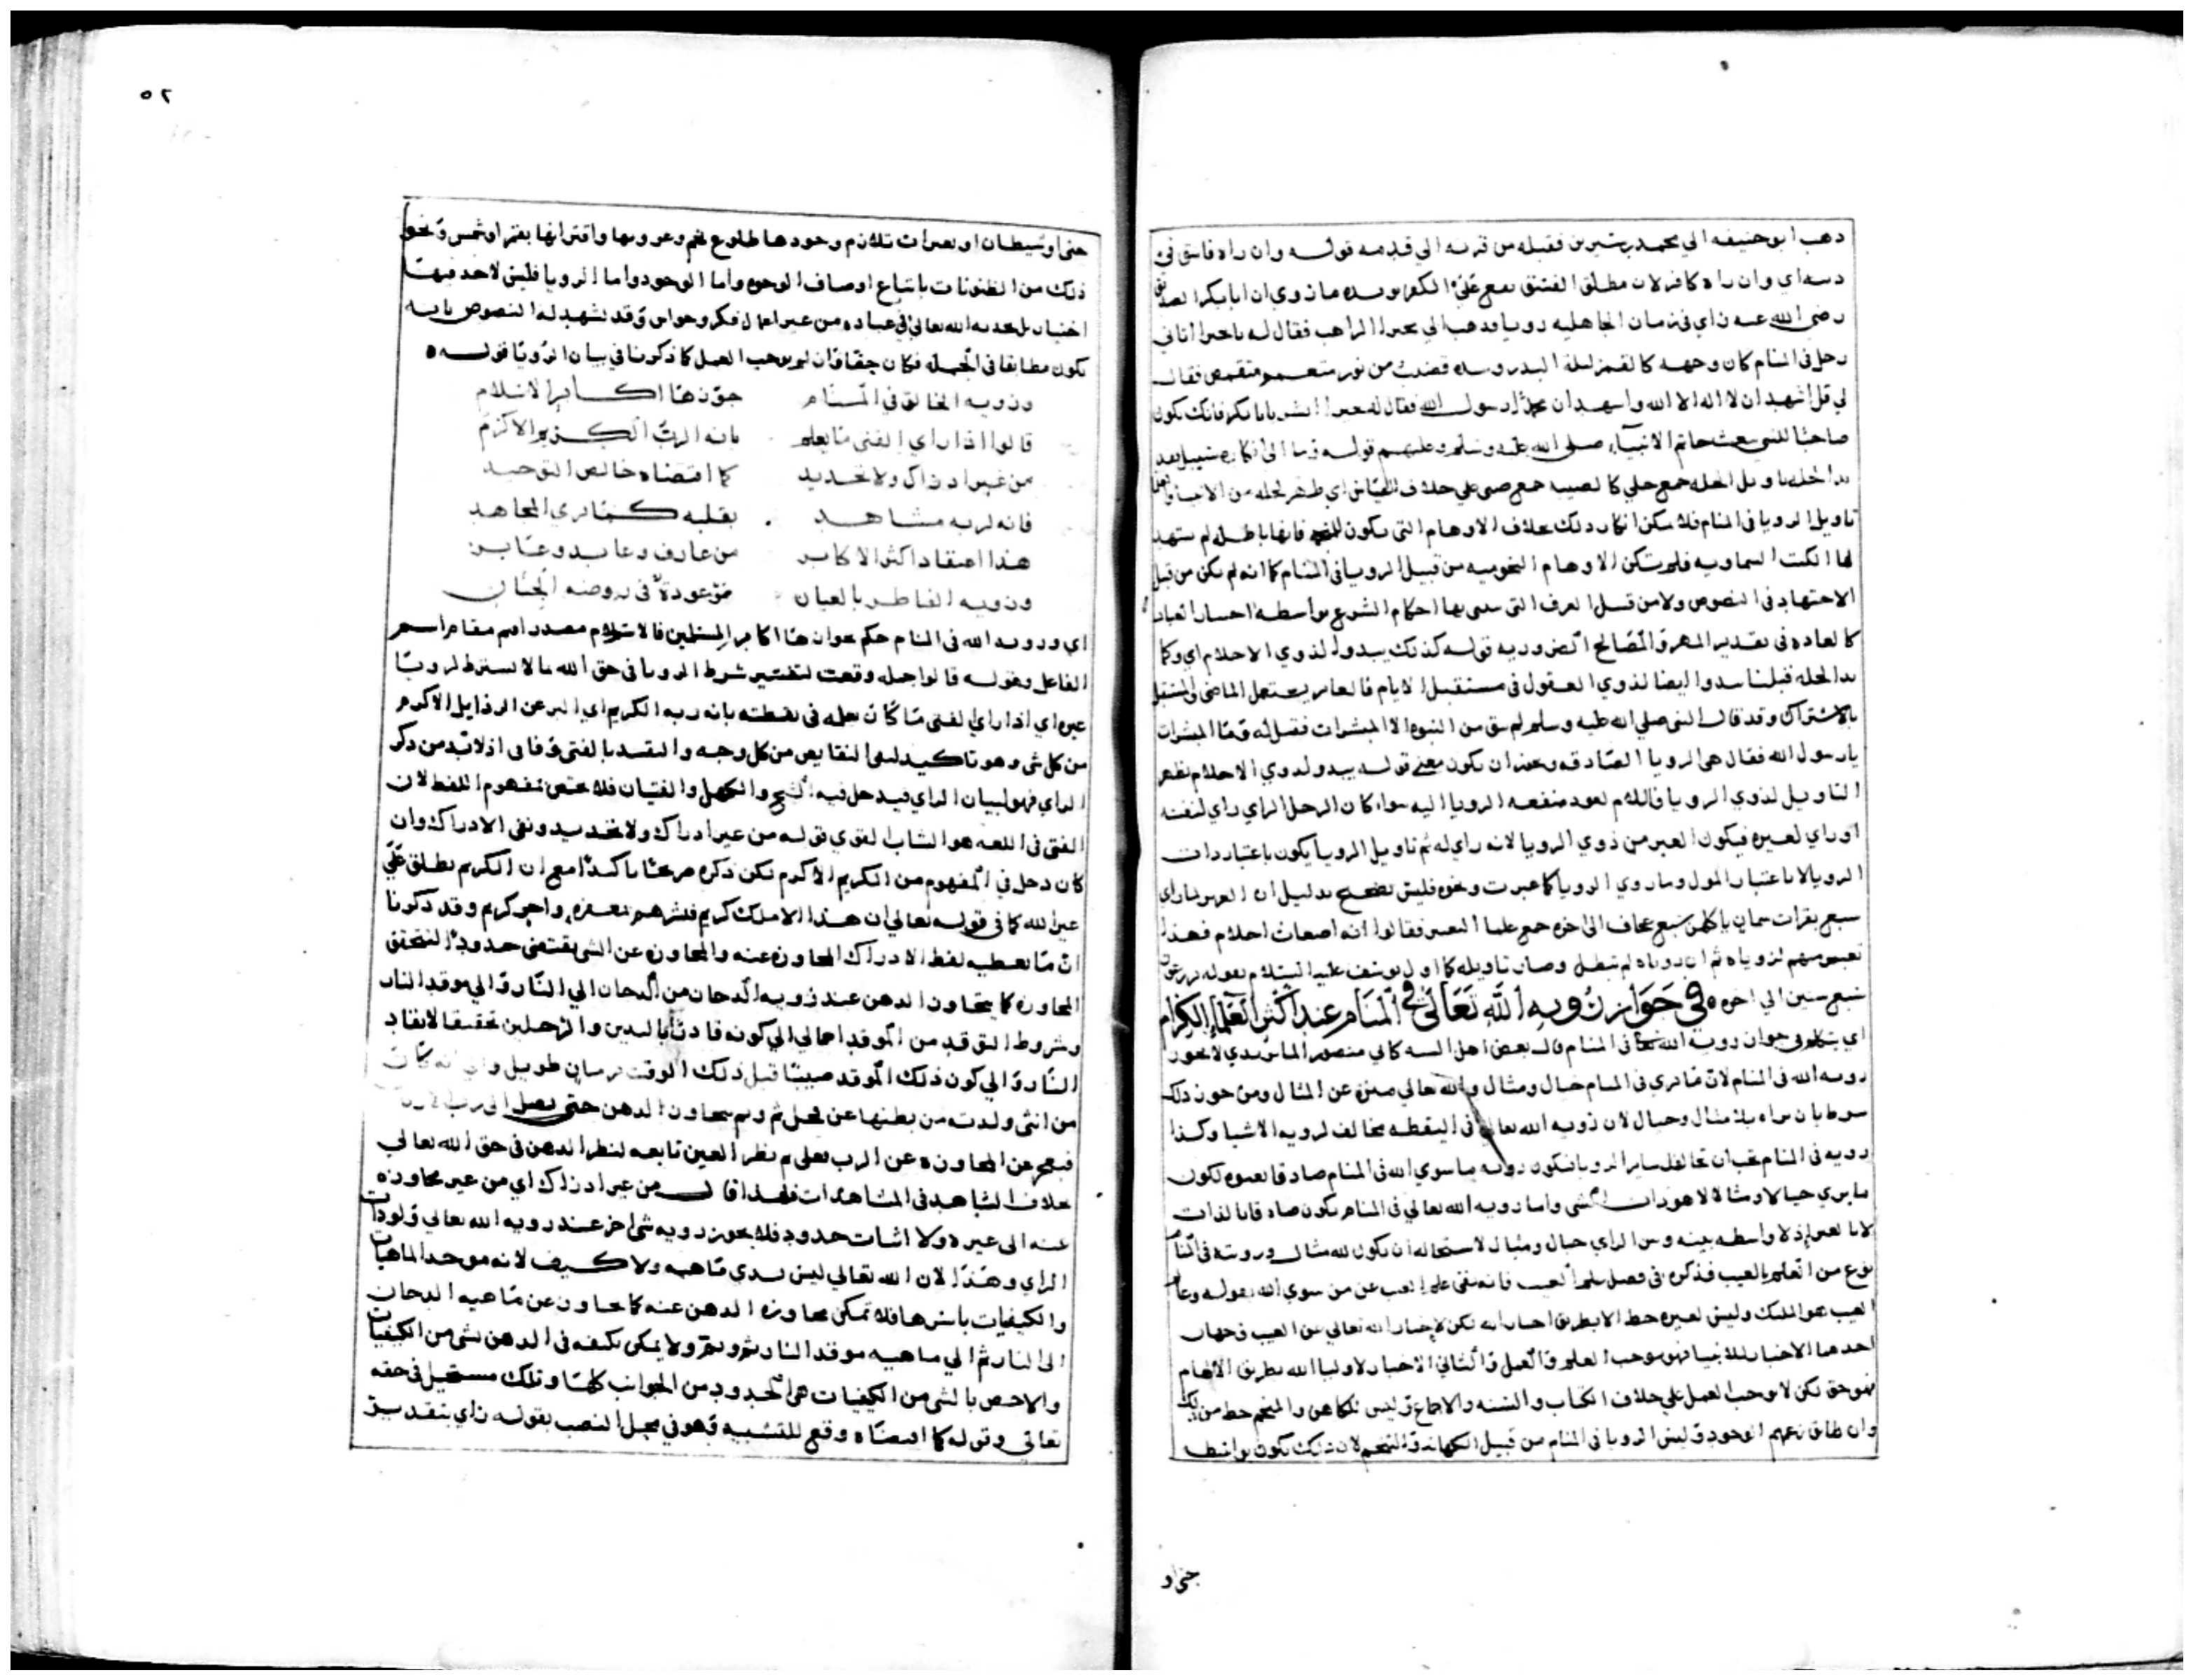 ذهب ابو حنيفه الي محمد بن سيرين فقبله من قرنه الي قدمه قوله وان راه فاسق في
دينه اي وان راه كافر لان مطلق الفسق يقع علي الكفر يويده ما روي ان ابا بكر الصديق
رضي الله عنه راي في زمان الجاهليه رويا فذهب الي بحيرا الراهب فقال له يا بحيرا اتاني
رجل في المنام كان وجهه كالقمر ليلة البدر وبيده قضيب من نور متعمم متقمص فقال
لي قل اشهد ان لا اله الا الله واشهد ان محمدا رسول الله فقال له بحيرا ابشر يا ابا بكر فانك تكون
صاحبا للنبي يبعث خاتم الانبياء صلي الله عليه وسلم وعليهم قوله وما الي انكاره سبيل بعد
تاويل الرويا في المنام فلا يمكن انكار ذلك بخلاف الاوهام التي تكون للمنجم فانها باطل لم يشهد
لها الكتب السماويه فلم تكن الاوهام النجوميه من قبيل الرويا في المنام كما انه لم تكن من قبل
الاجتهاد في النصوص ولا من قبيل العرف التي يبني بها احكام الشرع بواسطه اختيار العباد
كالعاده في تقدير المهر والمصالح الضروريه قوله كذلك يبدو لذوي الاحلام اي وكما
بدا لجله قبلنا يبدوا ايضا لذوي العقول في مستقبل الايام فالعامر يستعمل الماضي والمستقبل
بالاشتراك وقد قال النبي صلي الله عليه وسلم لم يبق من النبوه الا المبشرات فقيل له وما المبشرات
يا رسول الله فقال هي الرويا الصادقه ويجوز ان يكون معني قوله يبدو لذوي الاحلام يظهر
التاويل لذوي الرويا فاللام لعود منفعه الرويا اليه سواء كان الرجل الراي راي لنفسه
او راي لغيره فيكون الغير من ذوي الرويا لانه راي له ثم تاويل الرويا يكون باعتبار ذات
الرويا لا باعتبار الموول وما روي الرويا كما عبرت ونحوه فليس بصحيح بدليل ان العزيز لما راي
سبع بقرات سمان ياكلهن سبع عجاف الي اخره جمع علما التعبير فقالوا انه اضغاث احلام فهذا
تعبير منهم لروياه ثم ان روياه لم تبطل وصار تاويله كما اول يوسف عليه السلام بقوله تزرعون
سبع سنين الي اخره في جواز روية الله تعالي في المنام عند اكثر العلماء الكرام
اي يتكلم في جواز روية الله تعالي في المنام قال بعض اهل السنه كابي منصور الماتريدي لا يجوز
رويه الله في المنام لان ما يري في المنام خيال ومثال والله تعالي منزه عن المثال ومن جوز ذلك
شرط بان يراه بلا مثال وخيال لان رويه الله تعالي في اليقظه مخالف لرويه الاشيا وكذا
رويه في المنام يجب ان تخالف ساير الرويا فتكون رويه ما سوي الله في المنام صادقا لغيره لكون
ما يري خيالا ومثالا لا هو ذات الشي واما رويه الله تعالي في المنام يكون صادقا بالذات
لا بالغير اذ لا واسطه بينه وبين الراي خيال ومثال لاستحاله ان يكون لله مثال وروته في المنام
نوع من العلم بالغيب فذكره في فصل علم الغيب فانه نفي علم الغيب عن من سوي الله بقوله وعالم
الغيب هو الملك وليس لغيره حظ الا بطريق اخبار الله لكن لاخبار الله تعالي عن الغيب وجهان
احدهما الاخبار للانبيا فهو يوجب العلم والعمل والثاني الاخبار لاوليا الله بطريق الالهام
فهو حق لكن لا يوجب العمل علي خلاف الكتاب والسنه والاجماع وليس للكاهن والمنجم حظ من ذلك
وان طابق زعمهم الوجود وليس الرويا في المنام من قبيل الكهانه والتنجم لان ذلك تكون بواسطه
جني او
٥٢
جني او شيطان او بعبرات تلازم وجودها طلوع نجم وغروبها واقترانها بقمر او شمس ونحو
ذلك من الظنونات باتباع اوصاف الوجود واما الوجود واما الرويا فليس لاحد فيها
اختيار بل يحدثه الله تعالي في عباده من غير اعمال فكر وحواس وقد تشهد له النصوص بانه
يكون مطابقا في الجمله فكان حقا وان لم يوجب العمل كما ذكرنا في بيان الرويا قوله
وروية الخالق في المنام جوزها اكابر الاسلام
قالوا اذا راي الفتي ما يعلم بانه الرب الكريم الاكرم
من غير ادراك ولا تحديد كما اقتضاه خالص التوحيد
فانه لربه مشاهد بقلبه كما تري المجاهد
هذا اعتقاد اكثر الاكابر من عارف وعابد وعابر
وروية الفاطر بالعيان موعودة في روضة الجنان
اي وروية الله في المنام حكم بجوازها اكابر المسلمين فالاسلام مصدر اقيم مقام اسم
الفاعل وقوله قالوا جمله وقعت لتفسير شرط الرويا في حق الله ما لا يشترط لرويا
غيره اي اذا راي الفتي ما كان يعلمه في يقظته بانه ربه الكريم اي المبر عن الرذايل الاكرم
من كل شي وهو تاكيد لنفي النقايص من كل وجه والتقييد بالفتي وفاقي اذ لا بد من ذكر
الراي فهو لبيان الراي فيدخل فيه الشيخ والكهل والفتيان فلا يختص بمفهوم اللفظ لان
الفتي في اللغه هو الشاب القوي قوله من غير ادراك ولا تحديد ونفي الادراك وان
كان دخل في المفهوم من الكريم الاكرم لكن ذكره صريحا تاكيدا مع ان الكريم يطلق علي
غير الله كما في قوله تعالي ان هذا الا ملك كريم فبشرهم بمغفره واجر كريم وقد ذكرنا
ان ما يعطيه لفظ الادراك المجاوزه عنه والمجاوزه عن الشي يقتضي حدودا لتحقق
المجاوزه كما يتجاوز الذهن عند رويه الدخان من الدخان الي النار والي موقد النار
وشروط التوقد من الموقد اجمالي الي كونه قادرا باليدين والرجلين تحقيقا لايقاد
النار والي كون ذلك الموقد صبيا قبل ذلك الوقت بزمان طويل
من انثي ولدته من بطنها عن فحل ثم وثم يتجاوز الذهن حتي يصل الي
فيعجز عن المجاوزه عن الرب تعالي ثم نظر العين تابعه لنظر الذهن في حق الله تعالي
بخلاف الشاهد في المشاهدات فلهذا قال من غير ادراك اي من غير مجاوزه
عنه الي غيره ولا اثبات حدود فلا يجوز رويه شي اخر عند رويه الله تعالي ولو ذات
الراي وهذا لان الله تعالي ليس بذي ماهيه ولا كيف لانه موجد الماهيات
والكيفيات باسرها فلا تمكن مجاوزه الذهن عنه كما تجاوز عن ماهيه الدخان
الي النار ثم الي ماهيه موقد النار ثم وثم ولا يمكن تكيفه في الذهن بشي من الكيفيات
والاخص بالشي من الكيفيات هي الحدود من الجوانب كلها وذلك مستحيل في حقه
تعالي وقوله كما اقتضاه وقع للتشبيه وهو في محل النصب بقوله راي بتقدير